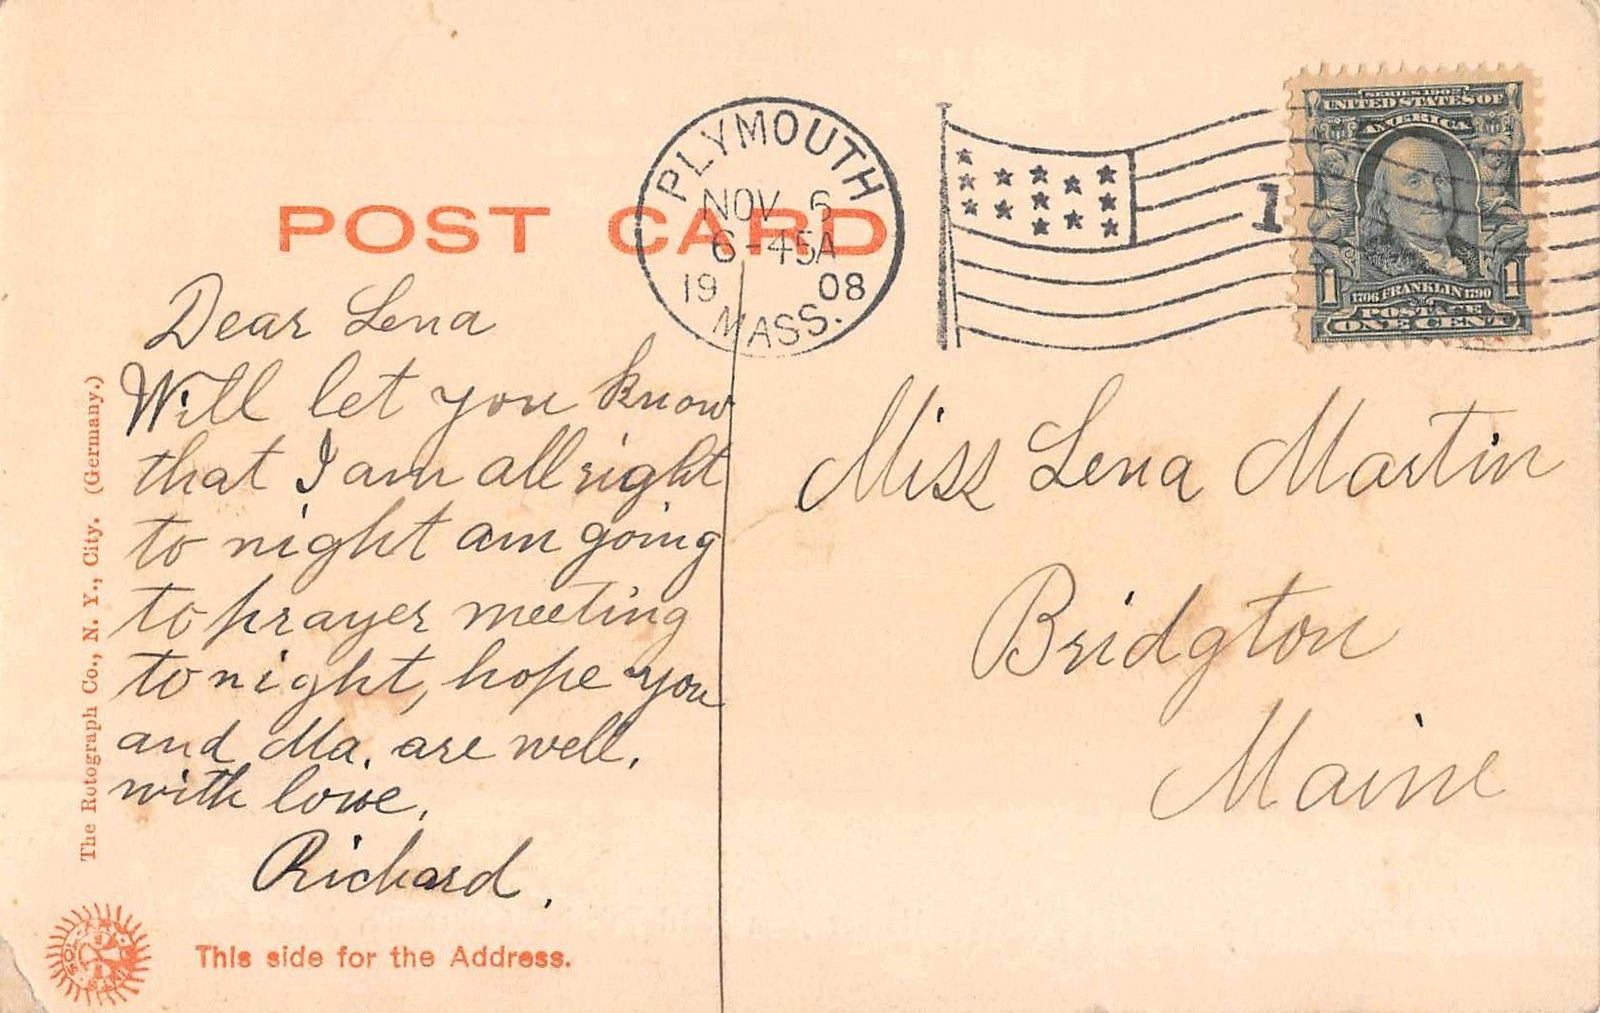 POST CARD
PLYMOUTH
NOV 6
6-45A
1908
MASS.
1
SERIES 1902
UNITED STATES OF
AMERICA
1 1
1706 FRANKLIN 1790
POSTAGE
ONE CENT
Dear Lena
Will let you know
that I am all right
to night am going
to prayer meeting
to night, hope you
and Ma. are well.
with love,
Richard.
Miss Lena Martin
Bridgton
Maine
The Rotograph Co., N. Y., City. (Germany.)
This side for the Address.